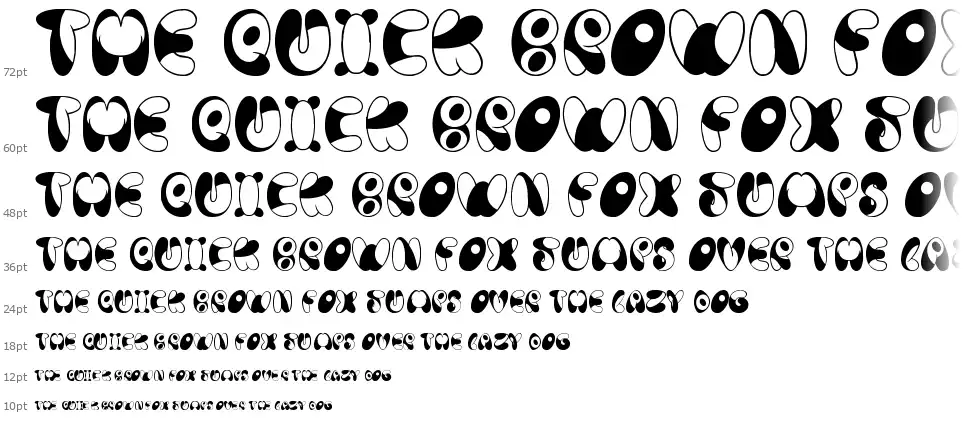 THE QUICK BROWN FOX
72pt
THE QUICK BROWN FOX JU
60pt
THE QUICK BROWN FOX JUMPS OV
48pt
THE QUICK BROWN FOX JUMPS OVER THE LAZ
36pt
THE QUICK BROWN FOX JUMPS OVER THE LAZY DOG
24pt
THE QUICK BROWN FOX JUMPS OVER THE LAZY DOG
18pt
THE QUICK BROWN FOX JUMPS OVER THE LAZY DOG
12pt
THE QUICK BROWN FOX JUMPS OVER THE LAZY DOG
10pt